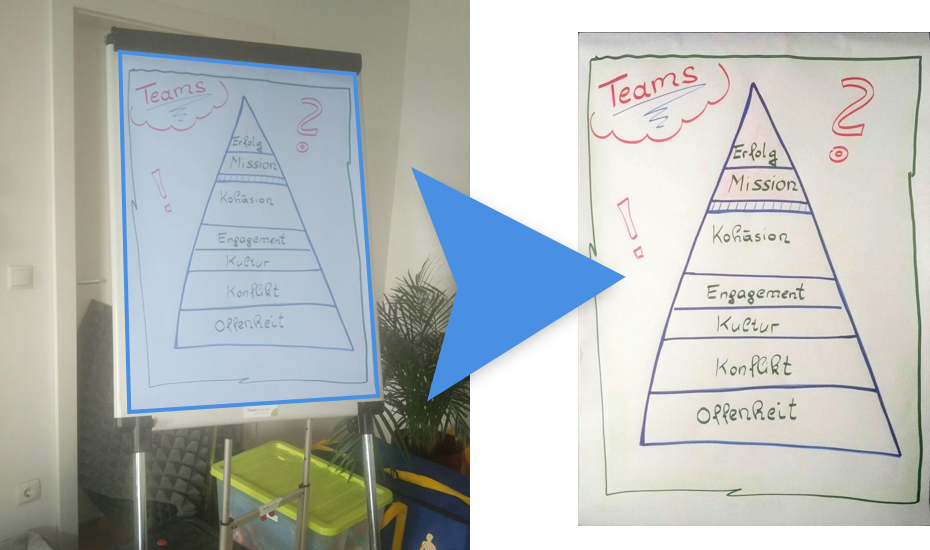 Teams
?
Erfolg
Mission
!
Kohäsion
Engagement
Kultur
Konflikt
Offenheit
Teams
?
Erfolg
Mission
!
Kohäsion
Engagement
Kultur
Konflikt
Offenheit